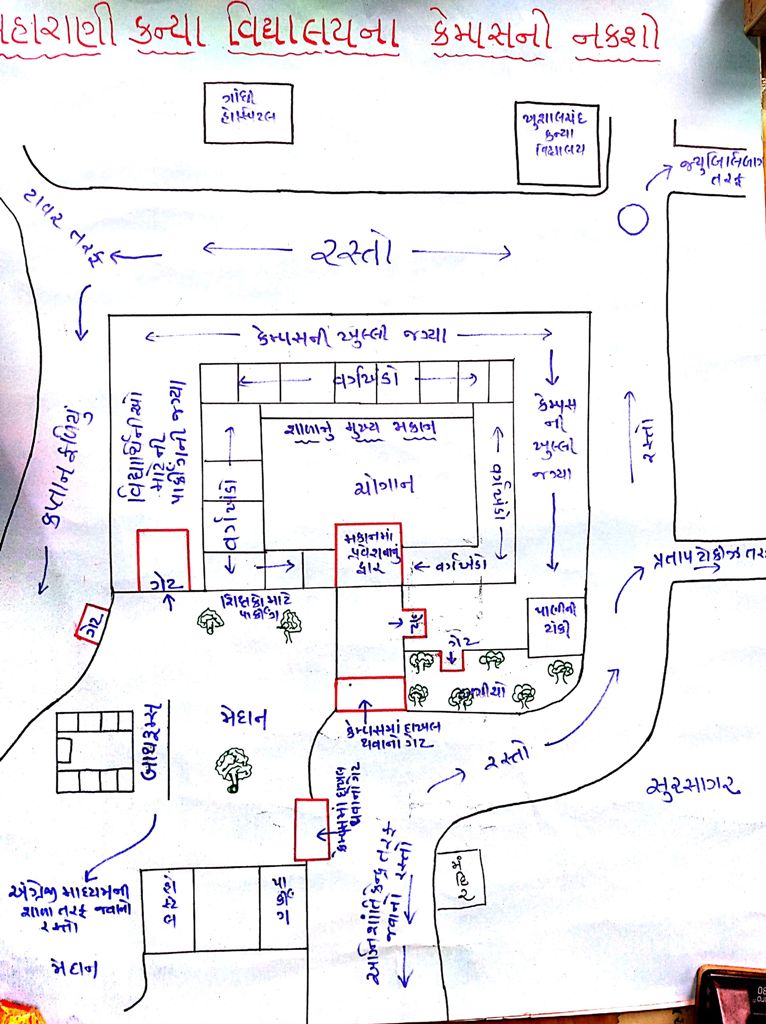 મહારાણી કન્યા વિદ્યાલયના કેમ્પસનો નકશો
ગાંધી
હોસ્પિટલ
ખુશાલચંદ
કન્યા
વિદ્યાલય
જ્યુબિલિબાગ
તરફ
ટાવર તરફ
રસ્તો
કેમ્પસની ખુલ્લી જગ્યા
વર્ગખંડો
શાળાનું મુખ્ય મકાન
ચોગાન
વિદ્યાર્થિનીઓ
માટેની
પાર્કીંગની જગ્યા
કપ્તાન ફળિયું
વર્ગખંડો
વર્ગખંડો
કેમ્પસ
ની
ખુલ્લી
જગ્યા
રસ્તો
મકાનમાં
પ્રવેશવાનું
દ્વાર
વર્ગખંડો
પ્રતાપ ટોકીઝ તરફ
ગેટ
ગેટ
શિક્ષકો માટે
પાર્કીંગ
ગેટ
પાણીની
ટાંકી
બગીચો
મેદાન
કેમ્પસમાં દાખલ
થવાનો ગેટ
બાથરૂમ્સ
કેમ્પસમાં દાખલ
થવાનો ગેટ
રસ્તો
સુરસાગર
મંદિર
અંગ્રેજી માધ્યમની
શાળા તરફ જવાનો
રસ્તો
મેદાન
પાર્કીંગ
અગ્નિશાંતિ કેન્દ્ર તરફ
જવાનો રસ્તો